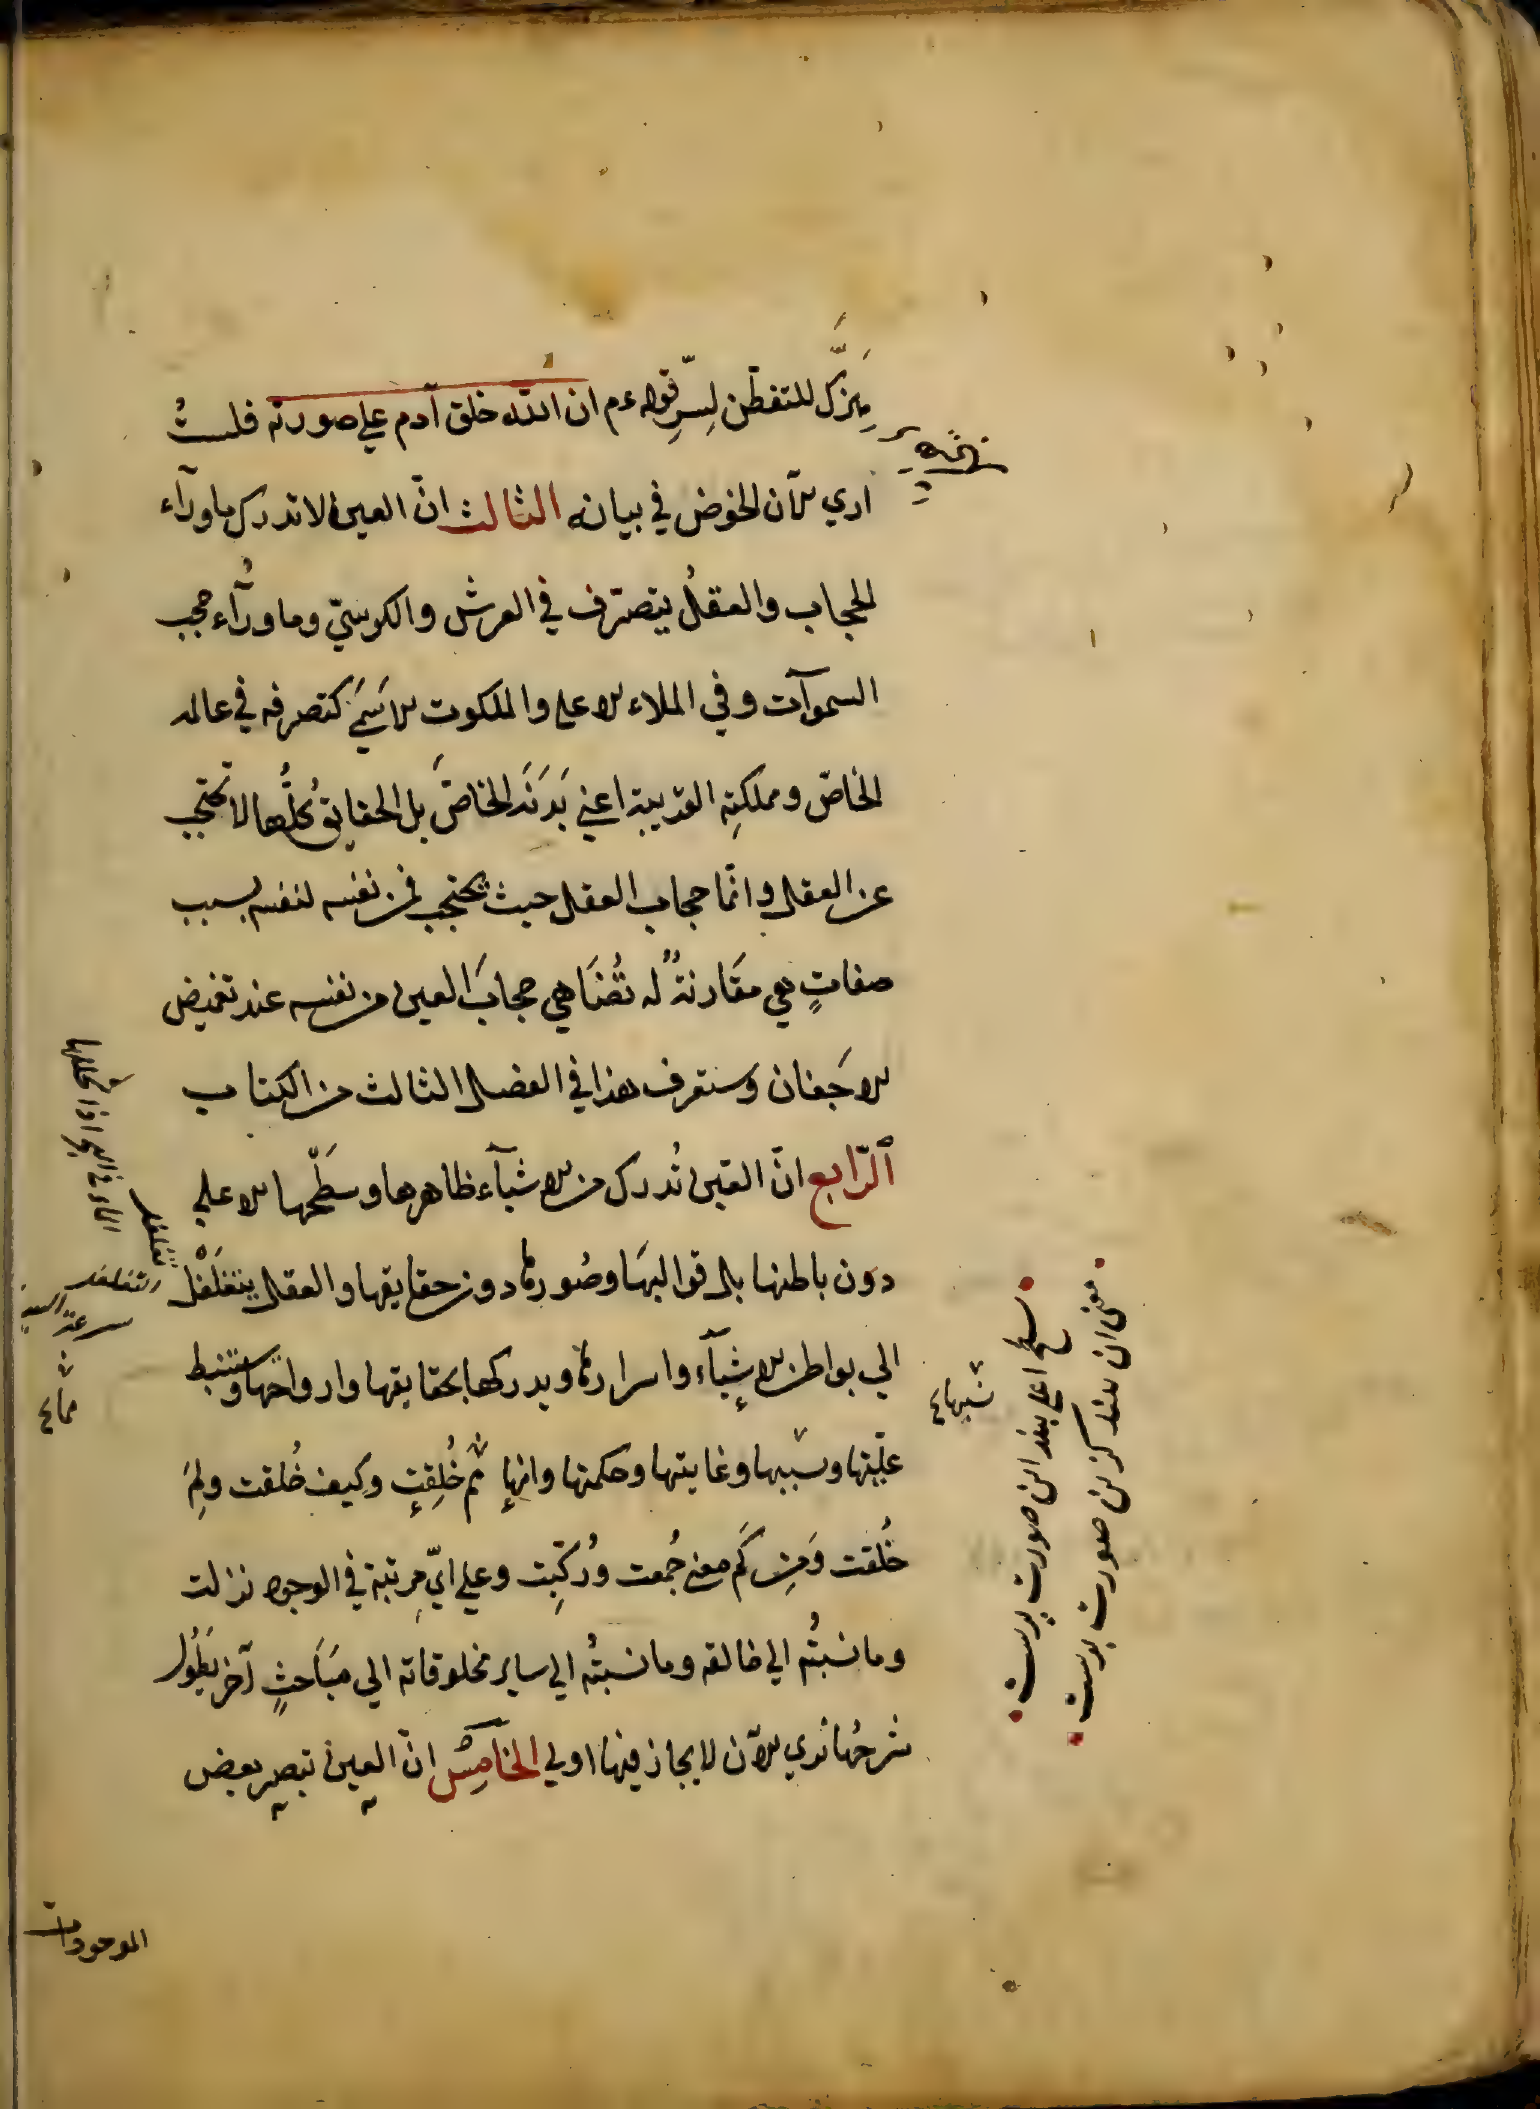 يهزّك للتفطّن لِسِرِّ قوله عم ان الله خلق آدم علي صورته فلستُ
اري الآن الخوض في بيانه الثالث انّ العين لا تدرك ما ورآء
الحجاب والعقلُ يتصرّف في العرش والكرسيّ وما ورآء حجب
السموآت وفي الملاء الاعلي والملكوت الاسَمي كتصرفه في عالمه
الخاصّ ومملكتِه القريبة اعني بَدَنَه الخاصّ بل الحقايق كُلُّها لا تحتجب
عن العقل وانّما حجاب العقل حيث يحتجب فمن نفسه لنفسه بسبب
صفاتٍ هي مقَارنةٌ له تُضَاهي حجابَ العين من نفسه عند تغميض
الاجَفان وستعرف هذا في الفصل الثالث من الكتاب
الرّابع انّ العَين تُدرك من الاشيآء ظاهرها وسَطْحها الاعلي
دون باطنها بل قوالبهَا وصُورها دون حقايقها والعقل يتغَلغَل
الي بواطن الاشيآء واسرارها ويدركها بحقايقها وارواحها ويستنبط
علّيتها وسببها وغايتها وحكمتها وانها مّم خُلِقت وكيف خُلقت ولِمَ
خُلقت وَمِن كَم معني جُمعت ورُكِّبت وعلي ايّ مرتبة في الوجود نزلت
وما نسبتُه الي خالقه وما نسبتُه الي ساير مخلوقاته الي مبَاحثٍ آخر يَطُول
شرحُها نري الآن لايجاز فيها اولي الخامِسُ انّ العين تبصر بعض
الماء في البحر اذا تخللها
تغلغل
التغلغل
مما
سببها
سطح اعلي بيند ازين صورت پرست
معنى ان بيند كزين صورت برست
الموجودات